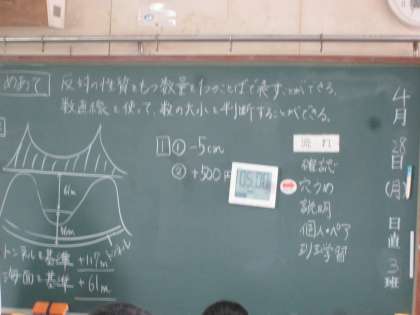 めあて 反対の性質をもつ数量をわかことばで表すことができる。
数直線を使って、数の大小を判断することができる。
1 ① -5cm
② +500円
05:00
流れ
確認
穴うめ
説明
個人・ペア
班学習
4月28日(月)日直3班
61m
トンネル
トンネルを基準 +117m
海面を基準 +61m